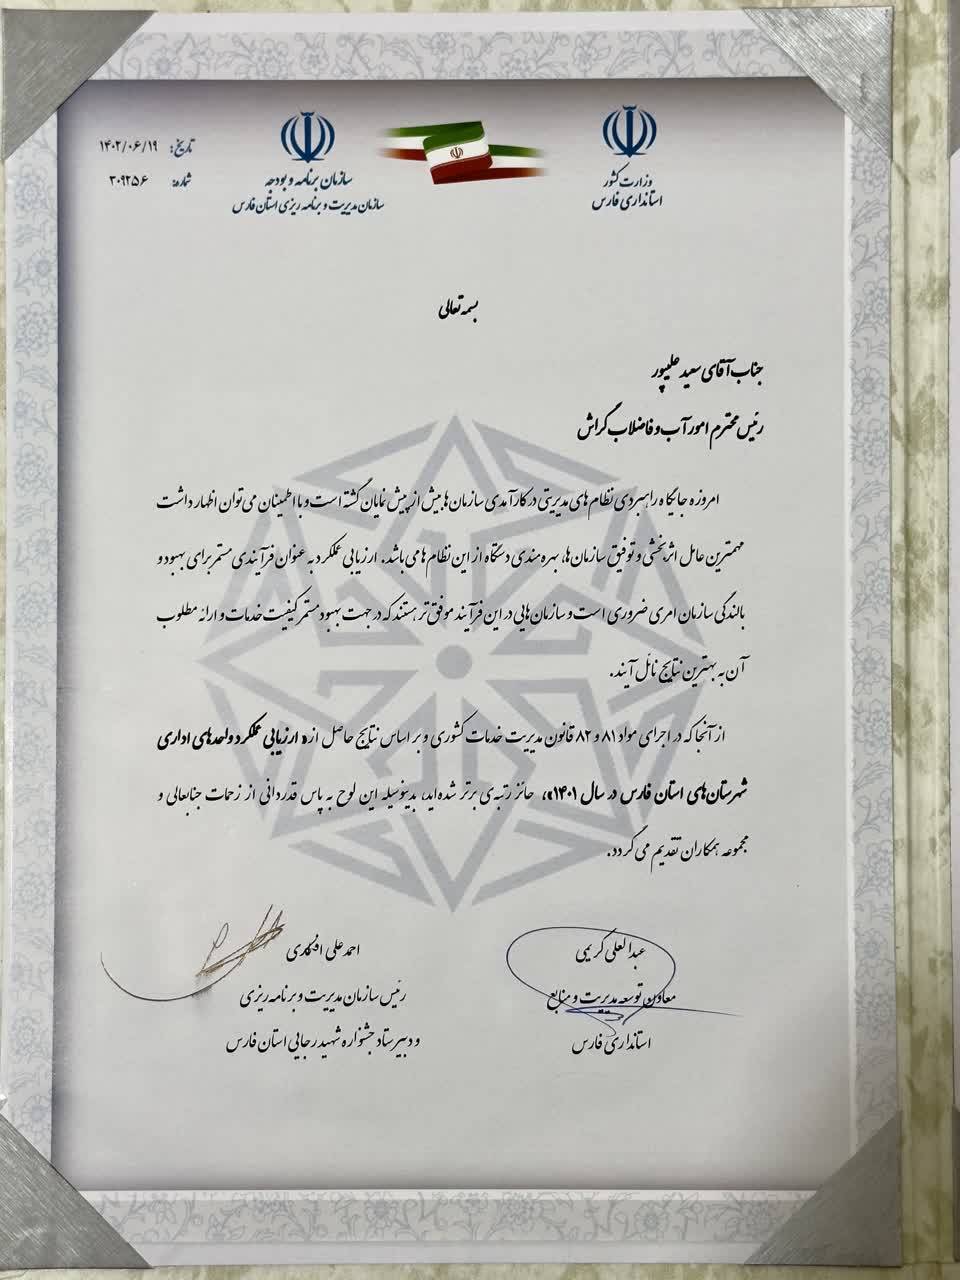 وزارت کشور
استانداری فارس
سازمان برنامه و بودجه
سازمان مدیریت و برنامه ریزی استان فارس
تاریخ: ۱۴۰۲/۰۶/۱۹
شماره: ۳۰۹۲۵۶
بسمه تعالی
جناب آقای سعید علیپور
رئیس محترم امور آب و فاضلاب گراش
امروزه جایگاه راهبردی نظام های مدیریتی در کارآمدی سازمان ها بیش از پیش نمایان گشته است و با اطمینان می توان اظهار داشت
مهمترین عامل اثربخشی و توفیق سازمان ها، بهره مندی دستگاه از این نظام ها می باشد. ارزیابی عملکرد به عنوان فرآیندی مستمر برای بهبود و
بالندگی سازمان امری ضروری است و سازمان هایی در این فرآیند موفق تر هستند که در جهت بهبود مستمر کیفیت خدمات و ارائه مطلوب
آن به بهترین نتایج نائل آیند.
از آنجا که در اجرای مواد ۸۱ و ۸۲ قانون مدیریت خدمات کشوری و بر اساس نتایج حاصل از «ارزیابی عملکرد واحدهای اداری
شهرستان‌های استان فارس در سال ۱۴۰۱»، حائز رتبه‌ی برتر شده‌اید، بدینوسیله این لوح به پاس قدردانی از زحمات جنابعالی و
مجموعه همکاران تقدیم می گردد.
عبدالعلی کریمی
معاون توسعه مدیریت و منابع
استانداری فارس
احمد علی افکندی
رئیس سازمان مدیریت و برنامه ریزی
و دبیر ستاد جشنواره شهید رجایی استان فارس